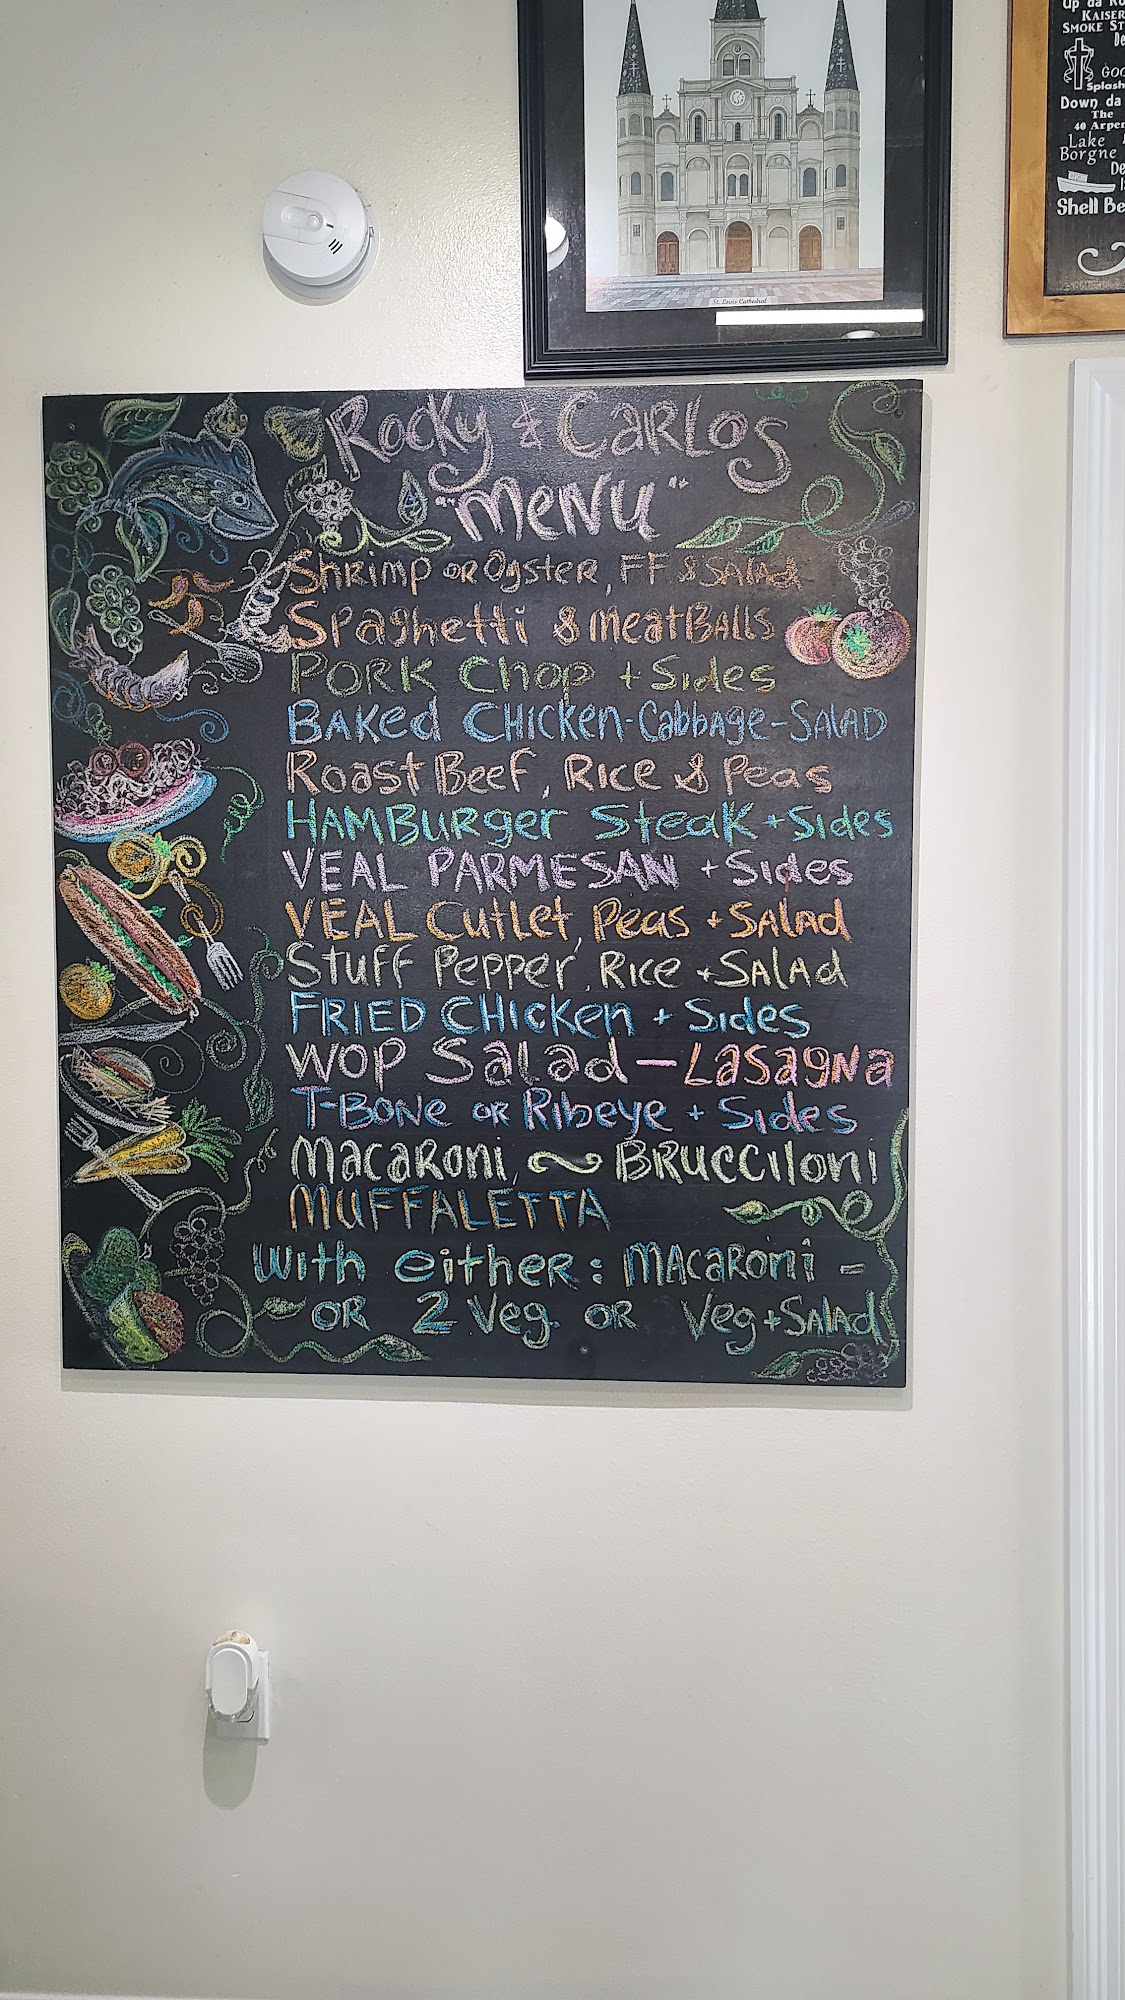 St. Louis Cathedral
Up da Ro
KAISER
SMOKE ST
De
GOO
Splash
Down da
The
40 Arpen
Lake
Borgne
De
Shell Be
Rocky & CARLOS
"MENU"
Shrimp OR Oyster, FF & Salad
Spaghetti & MeatBALLS
PORK Chop + Sides
BAKed CHicken-Cabbage-SALAD
Roast Beef, Rice & Peas
HAMBURger Steak + Sides
VEAL PARMESAN + Sides
VEAL Cutlet, Peas + Salad
Stuff Pepper, Rice + SALAd
FRIED CHicken + Sides
WOP Salad - Lasagna
T-BONe OR Ribeye + Sides
MacaRoni, ~ BRUCCILoni
MUFFALETTA
With either: MACaRoni -
OR 2 Veg. OR Veg + SALAd